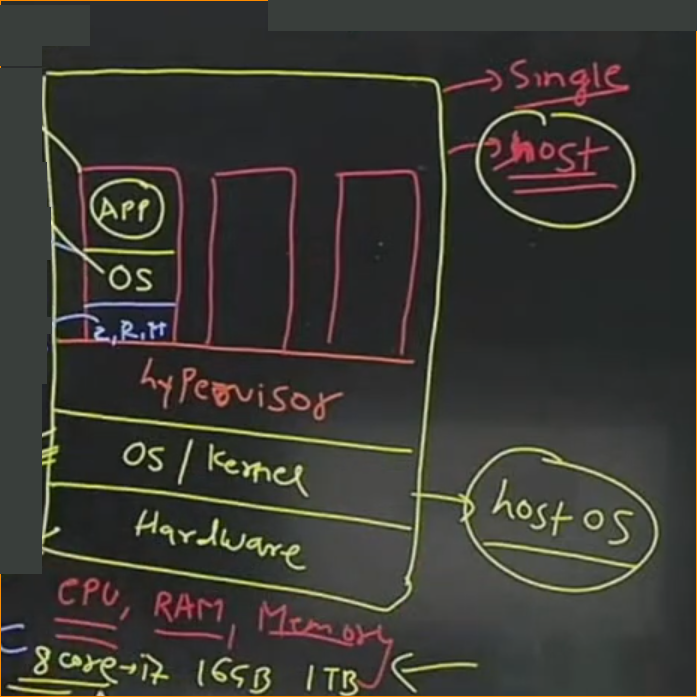 Single
host
APP
OS
2, R, M
hypervisor
OS / Kernel
host OS
Hardware
CPU, RAM, Memory
8 core → i7 16GB 1TB